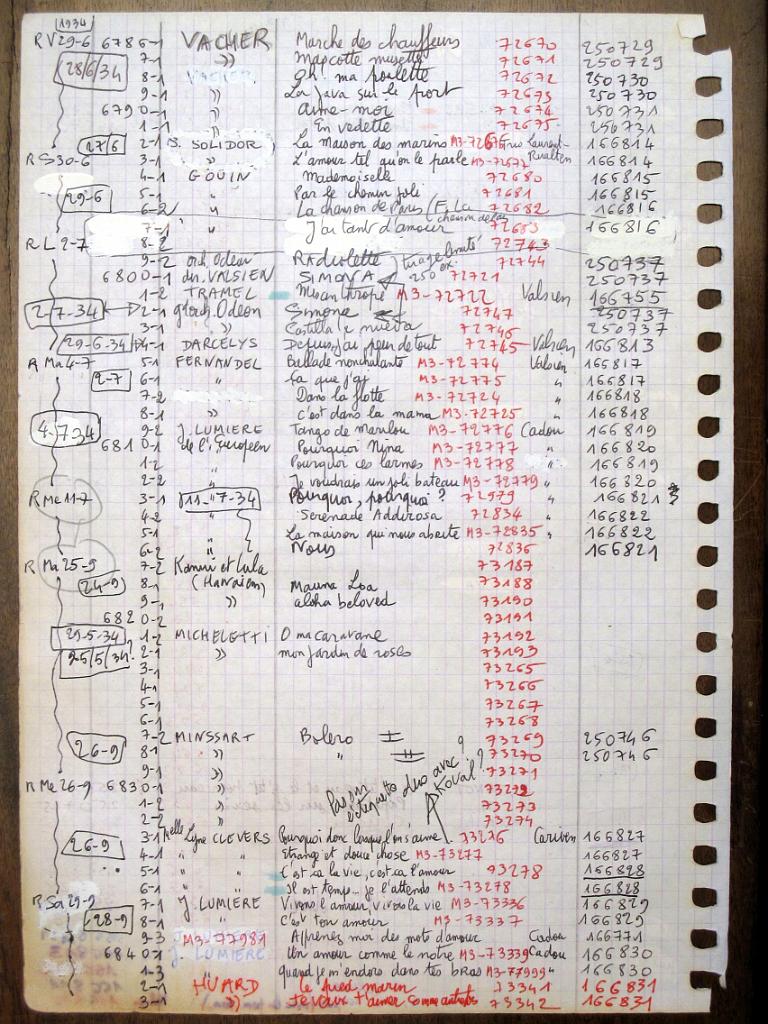 1934
RV29-6 6786-1 VACHER Marche des chauffeurs 72670 250729
7-1 " Mascotte musette 72671 250729
28/6/34 8-1 VACHER Oh! ma poulette 72672 250730
9-1 " La Java sur le port 72673 250730
679 0-1 " aime-moi 72674 250731
1-1 " En vedette 72675 250731
27/6 2-1 S. SOLIDOR La Maison des marins M3-72676 Laurent 166814
RS30-6 3-1 " L'amour tel qu'on le parle M3-72677 166814
4-1 GOUIN Mademoiselle 72680 166815
29-6 5-1 " Par le chemin joli 72681 166815
6-2 " La chanson de Paris 72682 166816
7-1 " J'ai tant d'amour 72683 166816
RL2-7 8-2 72743
9-2 orch. Odeon Radiolette tirage limité 250 ex. 72744 250737
6800-1 dir. VALSIEN SIMONA 72721 250737
1-2 TRAMEL Misanthrope M3-72722 Valsien 166755
2-7-34 2-1 orch. Odeon Simone 72747 250737
3-1 " Castilla la nueva 72746 250737
29-6-34 4-1 DARCELYS Depuis, j'ai peur de tout 72745 Valsien 166813
R Ma4-7 5-1 FERNANDEL Ballade nonchalante M3-72774 Valsien 166817
2-7 6-1 " Ça que j'ai M3-72775 " 166817
7-2 " Dans la flotte M3-72724 " 166818
8-1 " c'est dans la mama M3-72725 " 166818
4-7-34 9-2 J. LUMIERE Tango de Marilou M3-72776 Cadou 166819
681 0-1 de l'Européen Pourquoi Nina M3-72777 " 166820
1-2 " Pourquoi ces larmes M3-72778 " 166819
2-2 " Je voudrais un joli bateau M3-72779 " 166820
R Me11-7 3-1 11-7-34 Pourquoi, pourquoi? 72979 " 166821 ?
4-2 Serenade Addirosa 72834 " 166822
5-1 " La maison qui nous abrite M3-72835 " 166822
6-2 " Nous 72836 166821
R Ma25-9 7-2 Kanui et Lula 73187
24-9 8-1 (Hawaien) Mauna Loa 73188
9-1 " aloha beloved 73190
682 0-2 73191
29-5-34 1-2 MICHELETTI O ma caravane 73192
25/5/34 2-1 " mon jardin de roses 73193
3-1 73265
4-1 73266
5-1 73267
6-1 73268
7-2 MINSSART Bolero ? 73269 250746
26-9 8-1 " " 73270 250746
9-1 " 73271
R Me 26-9 6830-1 " 73272
1-2 " 73273
2-2 " 73274
Pas un étiquette duo avec KOVAL?
26-9 3-1 Melle Lyne CLEVERS Pourquoi donc lorsque l'on s'aime 73276 Cariven 166827
4-1 " " Etrange et douce chose M3-73277 166827
5-1 " " C'est ça la vie, c'est ça l'amour 93278 166828
6-1 " " Il est temps... je l'attends M3-73278 166828
R Sa 29-9 7-1 J. LUMIERE Vivons l'amour vivons la vie M3-73336 166829
28-9 8-1 " C'est ton amour M3-73337 166829
9-3 M3-77981 Apprenez moi des mots d'amour Cadou 166771
6840-1 J. LUMIERE Un amour comme le notre M3-73339 Cadou 166830
1-3 quand je m'endors dans tes bras M3-77999 " 166830
2-1 HUARD le pied marin 73341 166831
3-1 " Je veux t'aimer comme autrefois 73342 166831